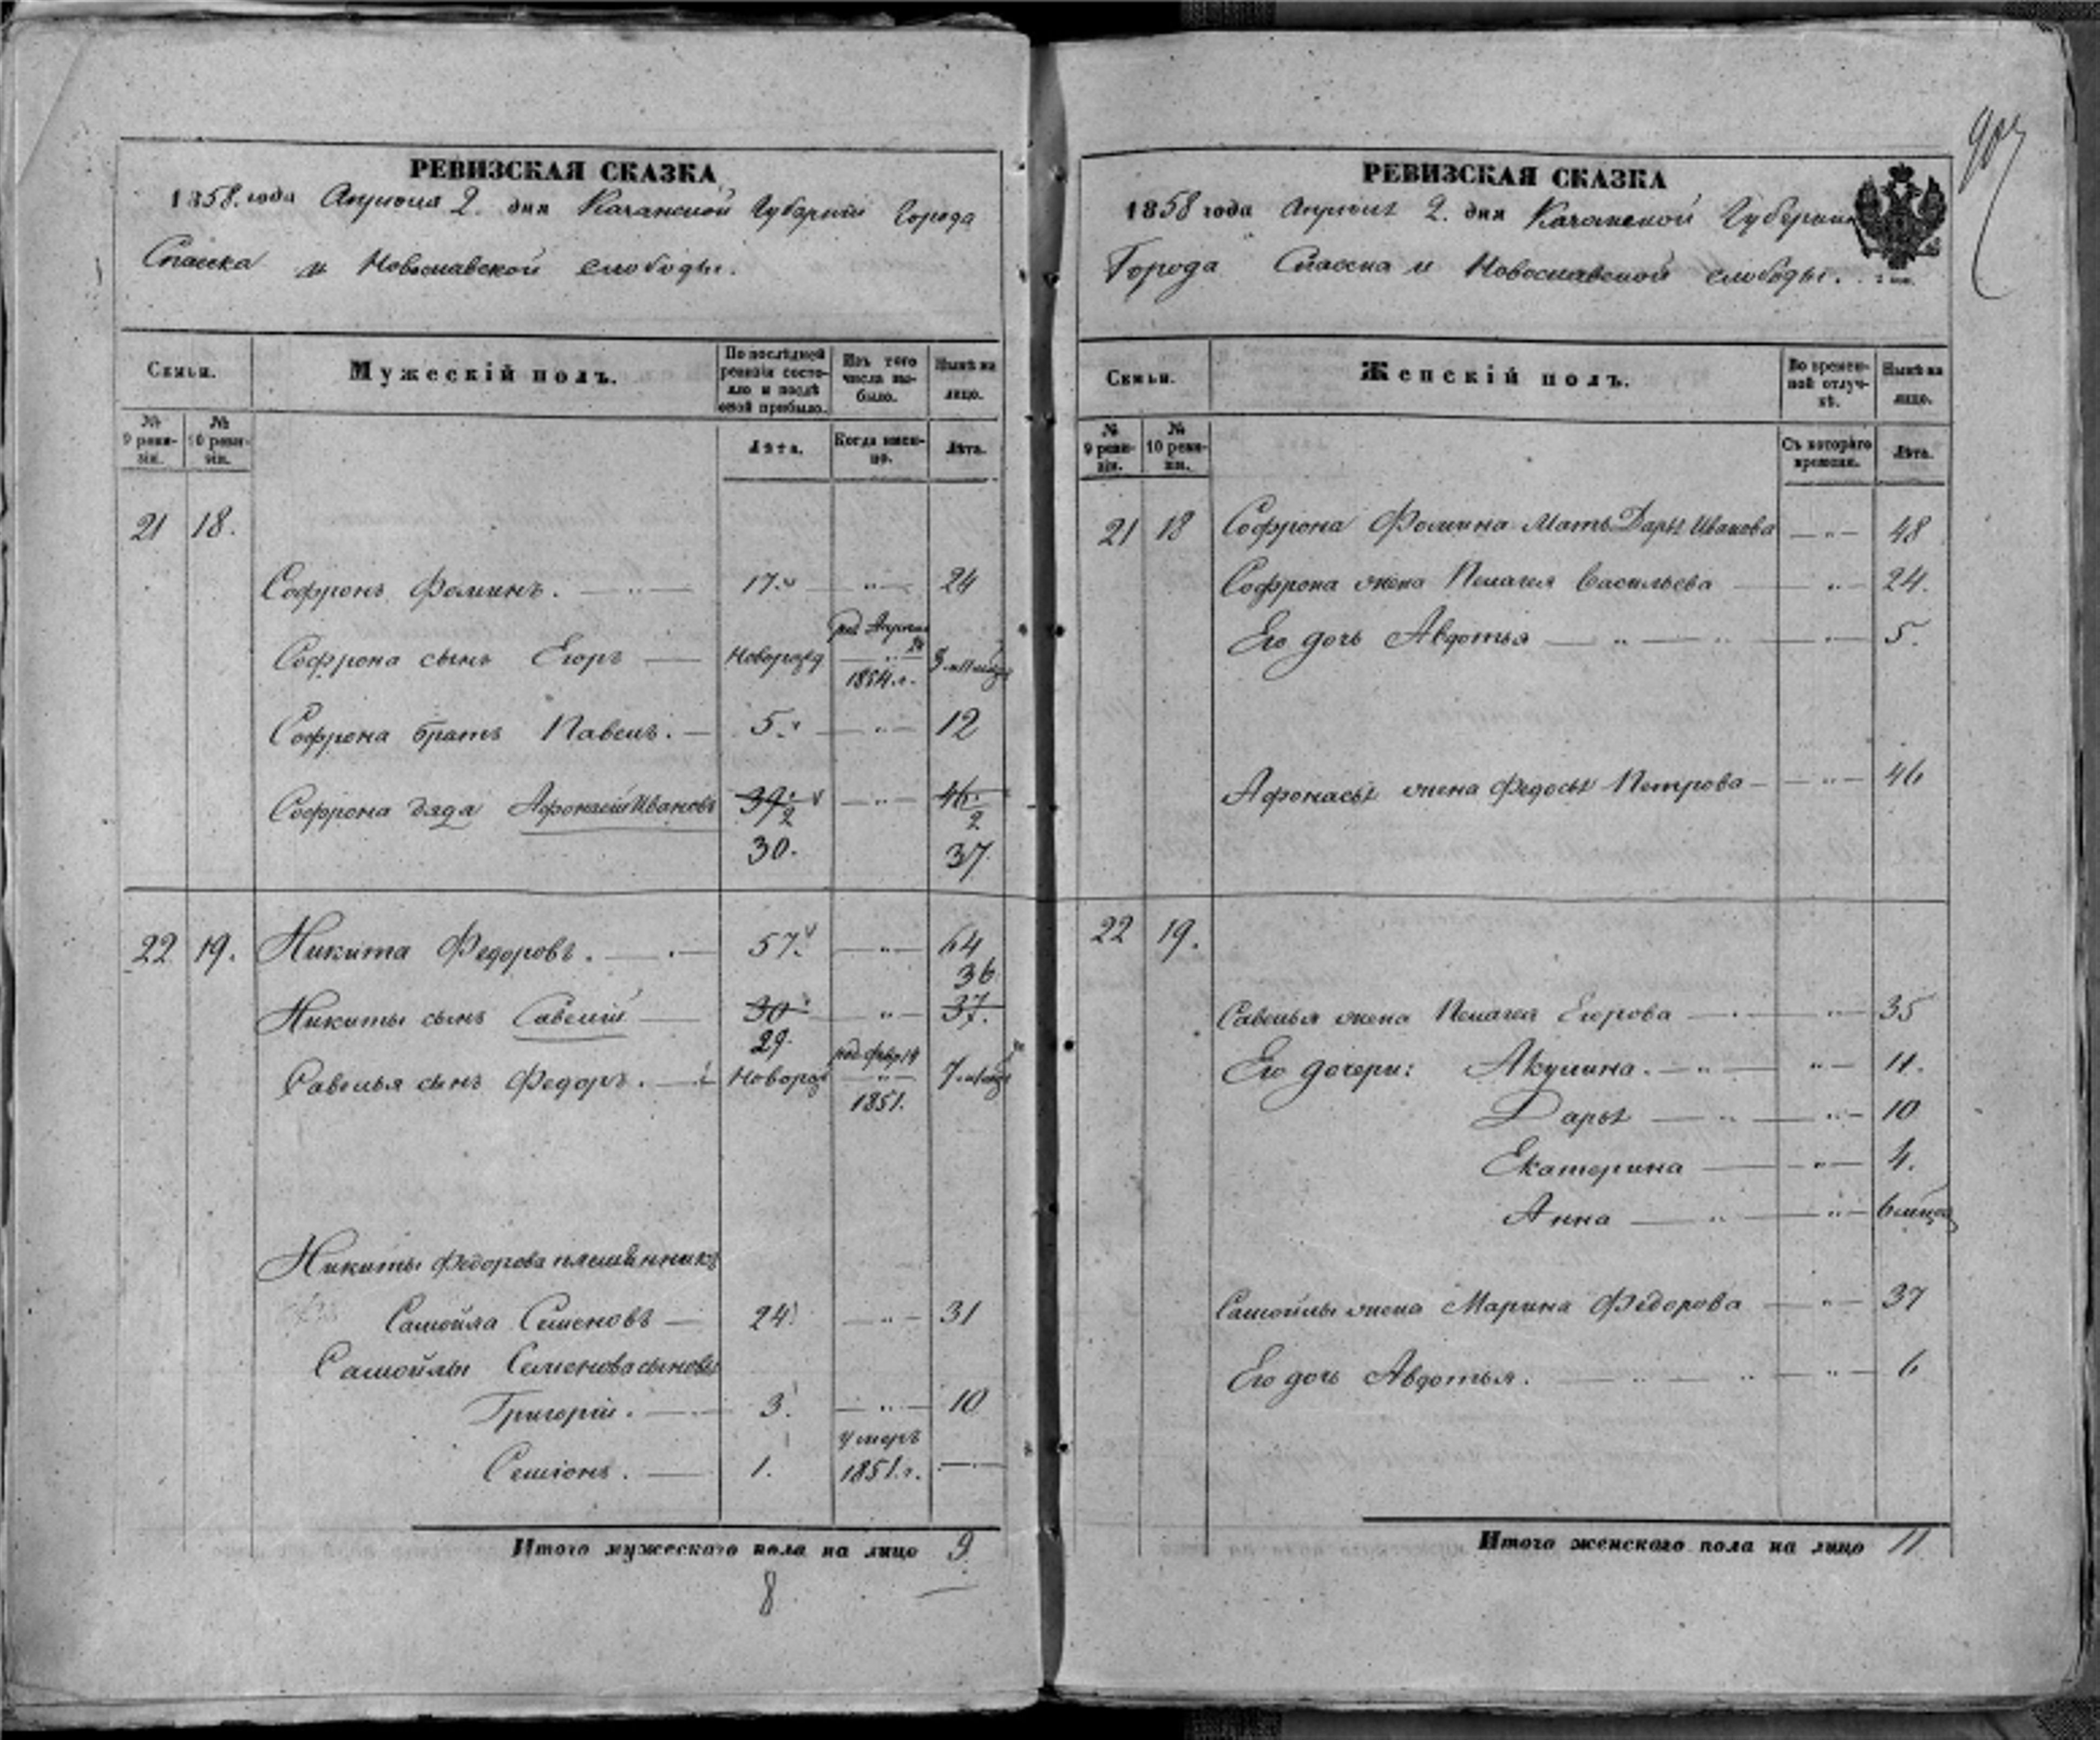 РЕВИЗСКАЯ СКАЗКА
1858. года Апреля 2. дня Казанской Губернии Города
Спасска и Новоспасской слободы.
Семьи.
Мужескій полъ.
По послѣдней ревизіи состояло и послѣ оной прибыло.
Изъ того числа выбыло.
Нынѣ на лицо.
№ 9 ревизіи.
№ 10 ревизіи.
Лѣта.
Когда именно.
Лѣта.
21 18.
Софронъ Фоминъ. 17. „ 24
Софрона сынъ Егоръ Новорожд род. Апреля 1854 г.
Софрона братъ Павелъ. 5. „ 12
Софрона дядя Афонасій Ивановъ 39 2 „ 46 2
30. 37.
22 19. Никита Федоровъ. 57. „ 64
36
Никиты сынъ Савелій 30 „ 37.
29.
Савелья сынъ Федоръ. Новорож род. февр 14 1851. 7
Никиты Федорова племянникъ
Самойла Семеновъ 24 „ 31
Самойлы Семенова сыновья
Григорій. 3. „ 10
Семіонъ. 1. умеръ 1851. г. —
Итого мужескаго пола на лицо 9
8
РЕВИЗСКАЯ СКАЗКА
1858 года Апреля 2. дня Казанской Губернии
Города Спасска и Новоспасской слободы.
Семьи.
Женскій полъ.
Во временной отлучкѣ.
Нынѣ на лицо.
№ 9 ревизіи.
№ 10 ревизіи.
Съ котораго времени.
Лѣта.
21 18 Софрона Фомина Мать Дарья Иванова „ 48
Софрона жена Пелагея Васильева „ 24.
Его дочь Авдотья „ 5.
Афонасья жена Федосья Петрова „ 46
22 19.
Савелья жена Пелагея Егорова „ 35
Его дочери: Акулина. „ 11.
Дарья „ 10
Екатерина „ 4.
Анна „ 6 месяц
Самойлы жена Марина Федорова „ 37
Его дочь Авдотья. „ 6
Итого женскаго пола на лицо 11